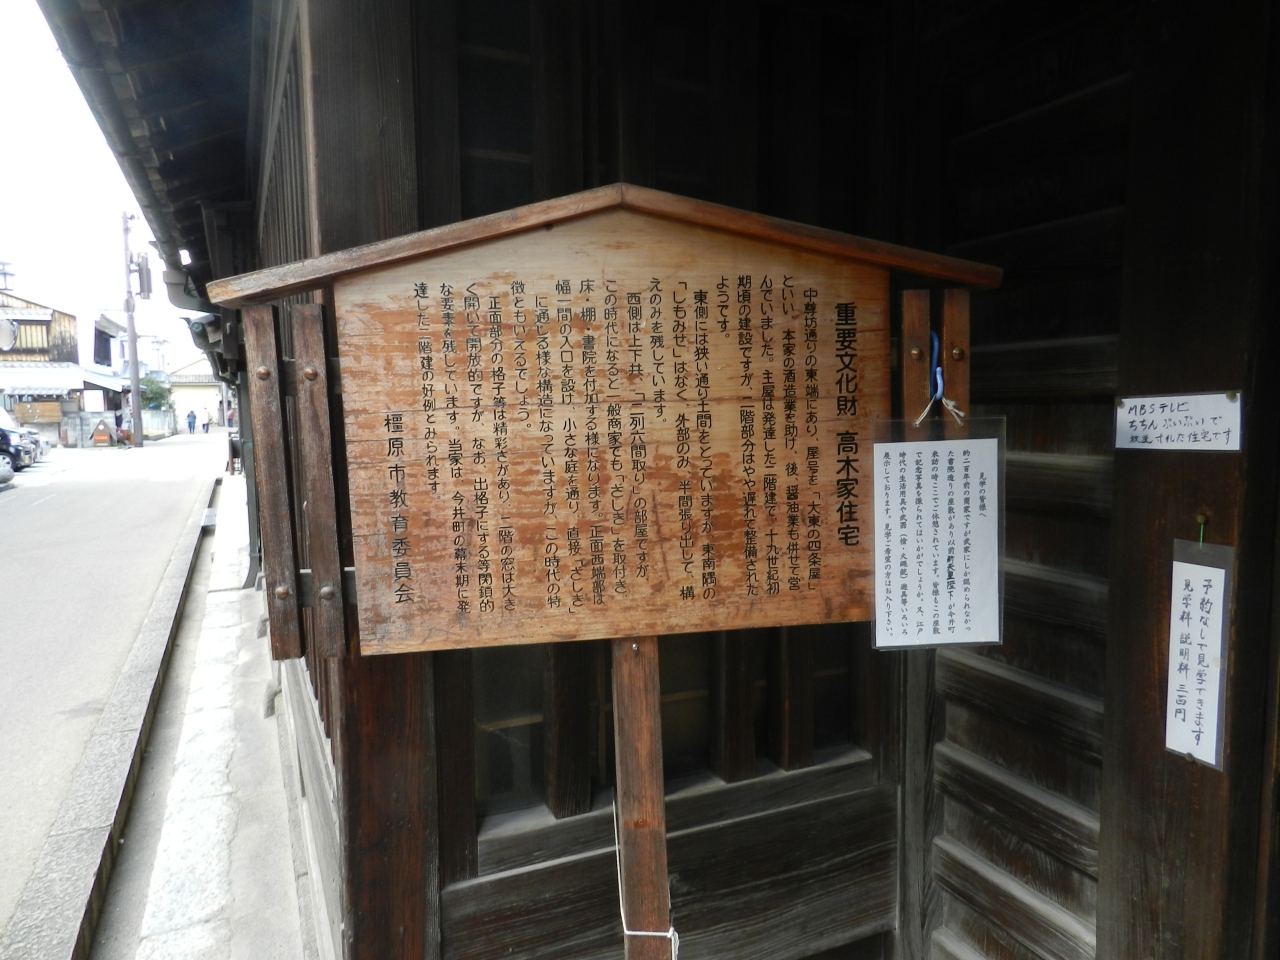 重要文化財 高木家住宅
中尊坊通りの東端にあり、屋号を「大東の四条屋」
といい、本家の酒造業を助け、後、醤油業も併せて営
んでいました。主屋は発達した二階建で、十九世紀初
期頃の建設ですが、二階部分はやや遅れて整備された
ようです。
東側には狭い通り土間をとっていますが、東南隅の
「しもみせ」はなく、外部のみ、半間張り出して、構
えのみを残しています。
西側は上下共、「二列六間取り」の部屋ですが、
この時代になると一般商家でも「ざしき」を取付き、
床・棚・書院を付加する様になります。正面西端部は
幅一間の入口を設け、小さな庭を通り、直接「ざしき」
に通じる様な構造になっていますが、この時代の特
徴ともいえるでしょう。
正面部分の格子等は精彩さがあり、二階の窓は大き
く開いて開放的ですが、なお、出格子にする等閉鎖的
な要素を残しています。当家は、今井町の幕末期に発
達した二階建の好例とみられます。
橿原市教育委員会
見学の皆様へ
約二百年前の商家ですが武家にしか認められなかっ
た書院造りの座敷があり以前新天皇陛下が今井町
来訪の時ここでご休憩されています。皆様もこの座敷
で記念写真を撮られてはいかがでしょうか。又、江戸
時代の生活用具や武器（槍・火縄銃）遊具等いろいろ
展示しております。見学ご希望の方はお入り下さい。
MBSテレビ
ちちんぷいぷいで
放送された住宅です
予約なしで見学できます
見学料 説明料 三百円